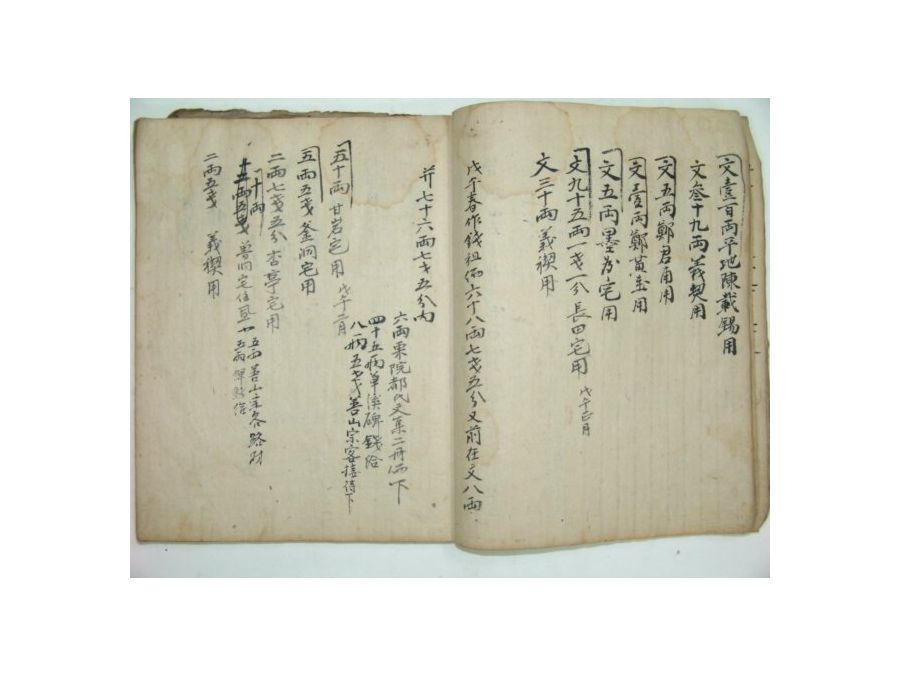 文壹百両平地陳載錫用
文叄十九両義契用
文五両鄭君甫用
文壹両鄭黃圭用
一文五両墨谷宅用
文九十五両一戔一分長田宅用 戊午正月
文三十両義稧用
戊午春作錢租価六十八両七戔五分又前在文八両
幷七十六両七戔五分內
六両栗院都氏文集二冊価下
四十五両單溪碑錢給
八両五戔善山宗客接待下
五十両甘岩宅用 戊午二月
五両五戔釜洞宅用
二両七戔五分杏亭宅用
十両
十五両五戔
五両善山宗客路用
二両五戔 義稧用